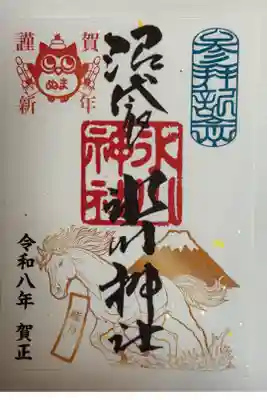 参拝記念
沼袋 氷川神社
氷川神社
謹賀
新年
ぬま
令和八年 賀正
睦月